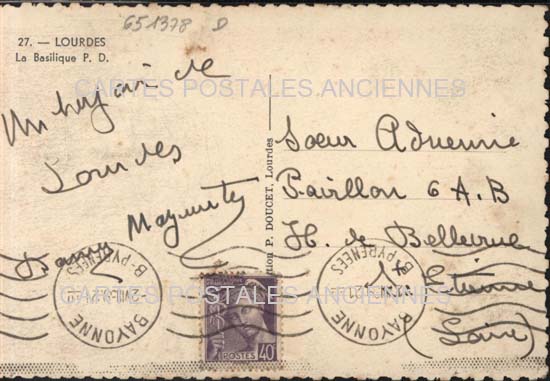 651378 D
27. — LOURDES
La Basilique P. D.
CARTES POSTALES ANCIENNES
Un de
Lourdes
Soeur Adrienne
Pavillon 6 A.B
H. de Bellevue
St Etienne
(Loire)
P. DOUCET, Lourdes
BAYONNE
Bses PYRENEES
BAYONNE
Bses PYRENEES
CARTES POSTALES ANCIENNES
POSTES 40